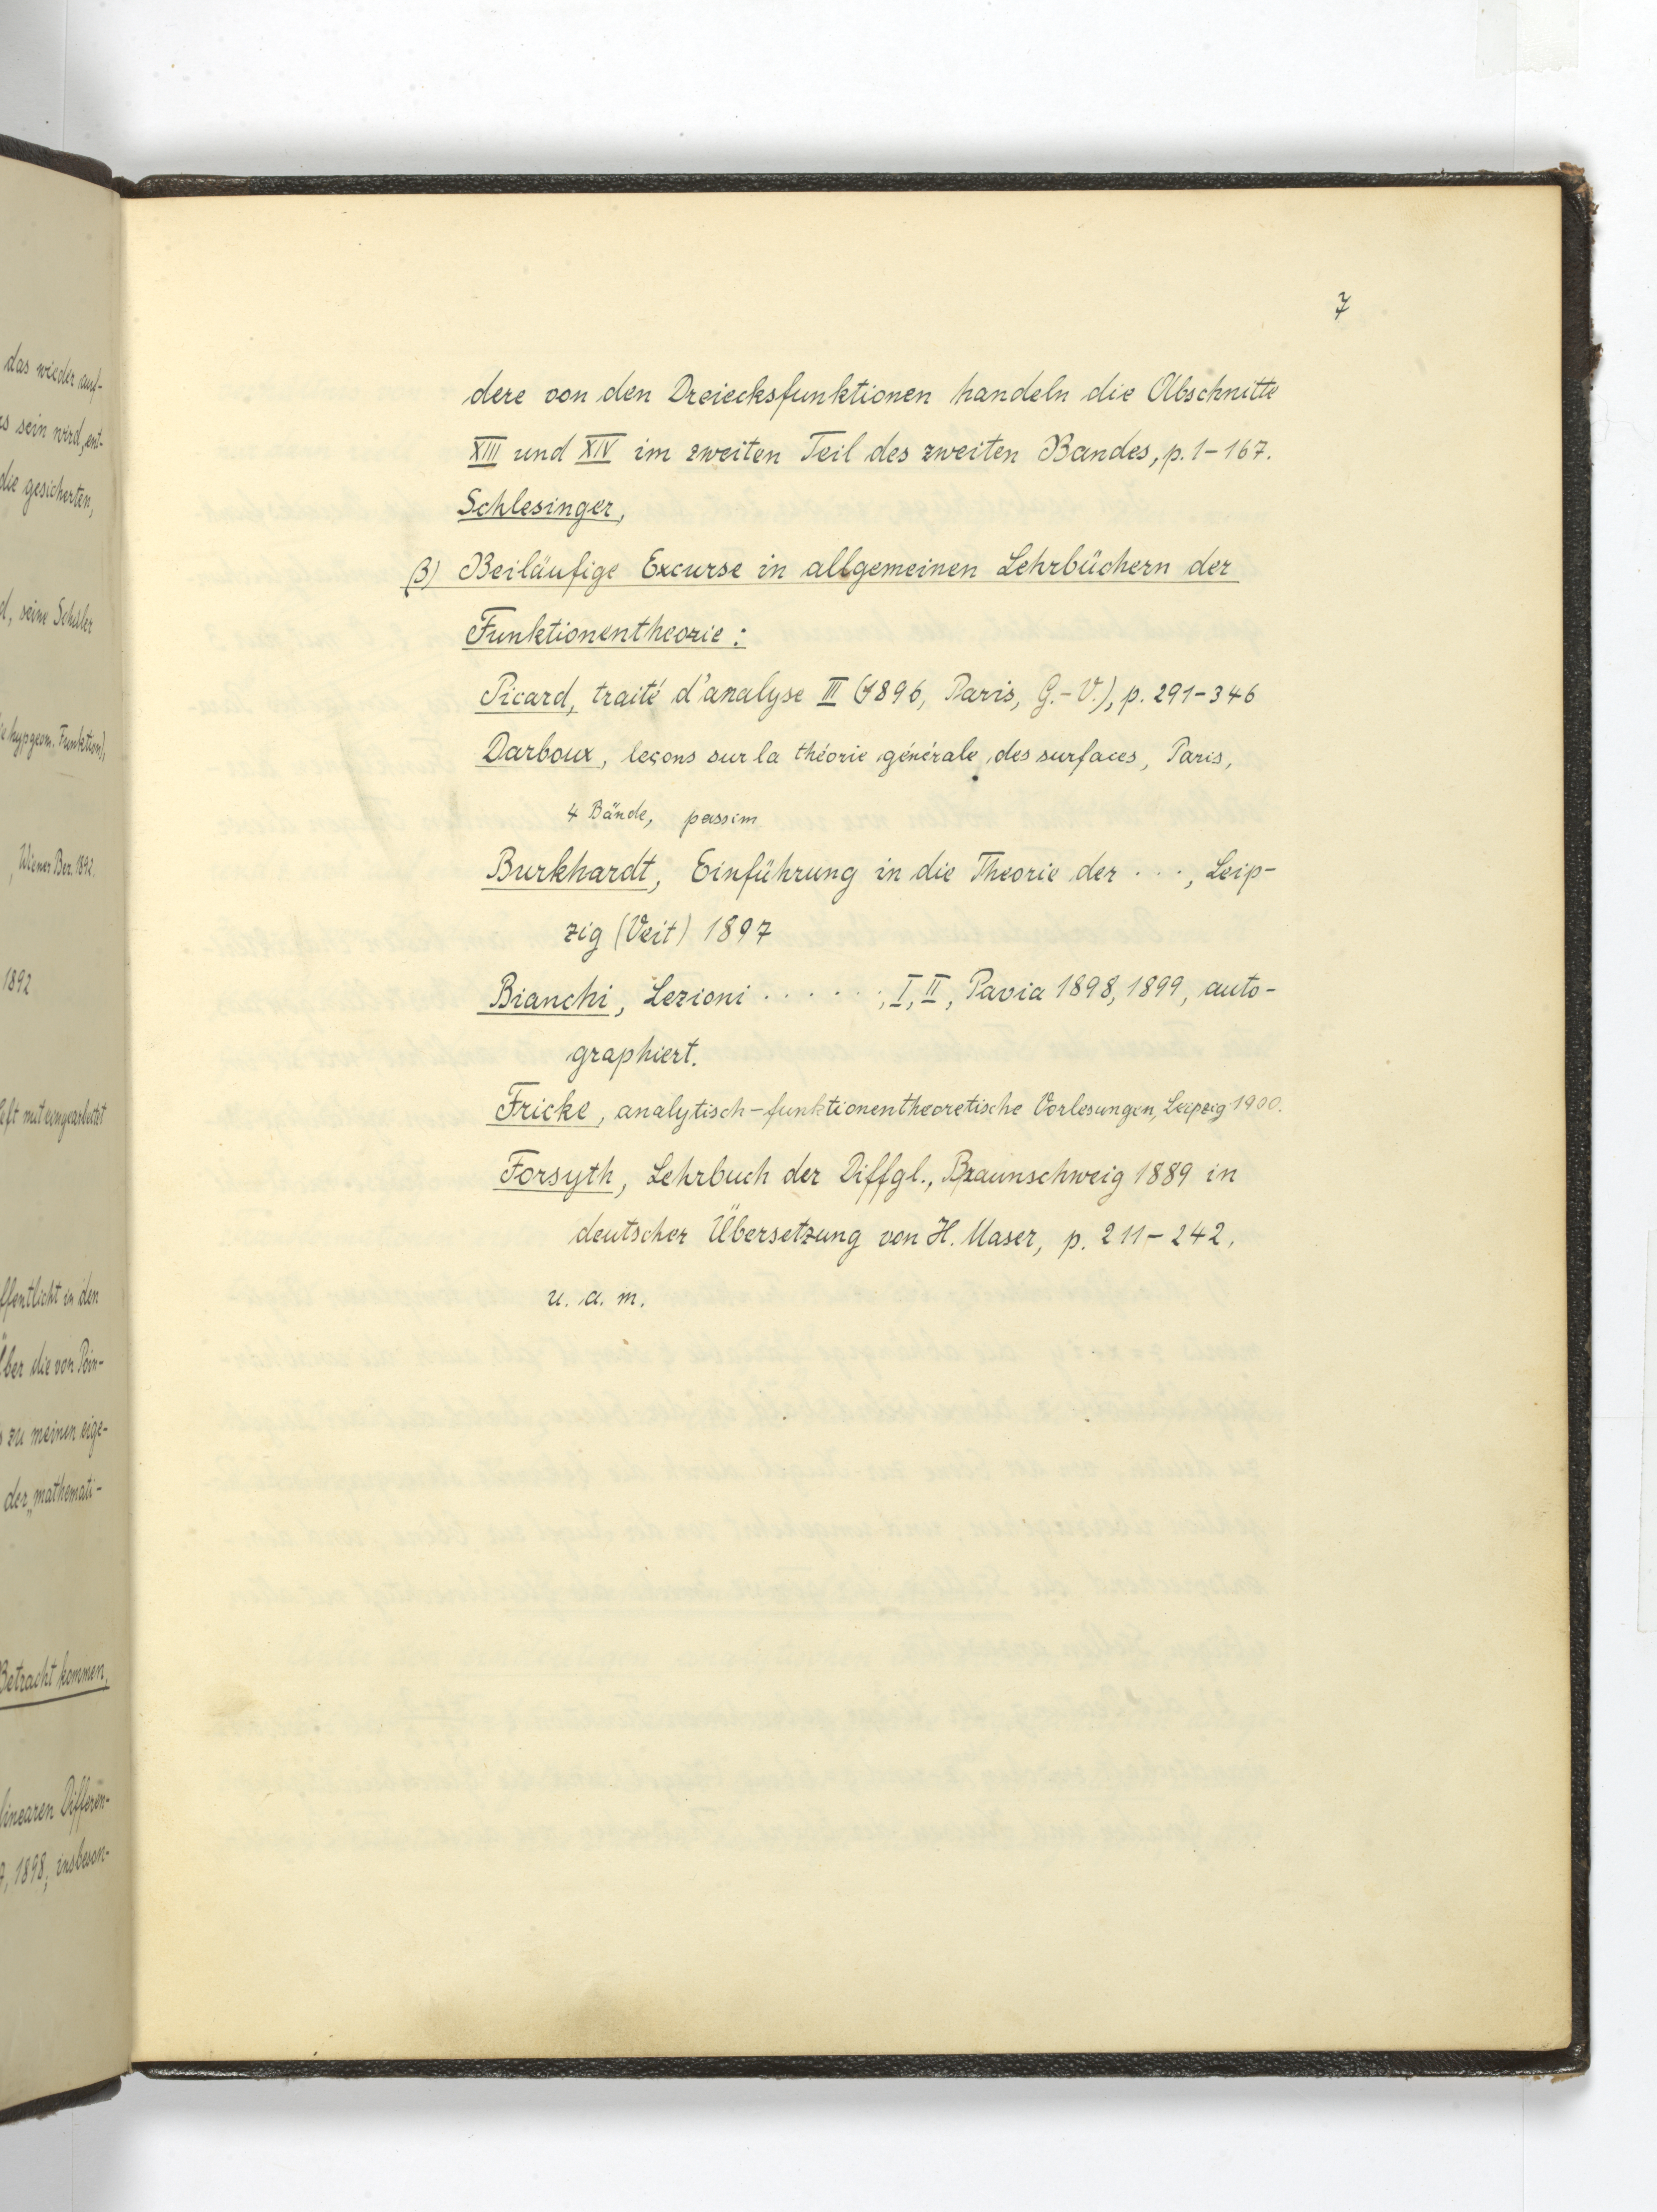 das wieder auf-
sein wird, ent-
die gesicherten,
seine Schüler
hypgeom. Funktion),
Wiener Ber. 1892.
1892
mit eingearbeitet
ffentlicht in den
Über die von Poin-
zu meinen eige-
der „mathemati-
Betracht kommen,
linearen Differen-
1898, insbeson-
7
dere von den Dreiecksfunktionen handeln die Abschnitte
XIII und XIV im zweiten Teil des zweiten Bandes, p. 1-167.
Schlesinger,
β) Beiläufige Excurse in allgemeinen Lehrbüchern der
Funktionentheorie:
Picard, traité d'analyse III (1896, Paris, G.-V.), p. 291-346
Darboux, leçons sur la théorie générale des surfaces, Paris,
4 Bände, passim
Burkhardt, Einführung in die Theorie der . . ., Leip-
zig (Veit) 1897
Bianchi, Lezioni . . . . . ., I, II, Pavia 1898, 1899, auto-
graphiert.
Fricke, analytisch-funktionentheoretische Vorlesungen, Leipzig 1900.
Forsyth, Lehrbuch der Diffgl., Braunschweig 1889 in
deutscher Übersetzung von H. Maser, p. 211-242,
u. a. m.